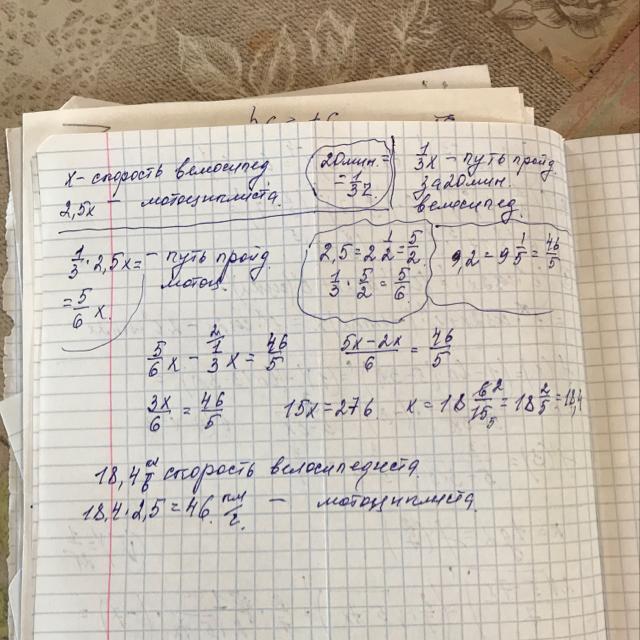 x - скорость велосипед.
2,5x - мотоциклиста
20 мин. =
= 1/3 ч.
1/3 x - путь пройд.
за 20 мин.
велосипед.
1/3 · 2,5x = - путь пройд.
мотоц.
= 5/6 x.
2,5 = 2 1/2 = 5/2
1/3 · 5/2 = 5/6.
9,2 = 9 1/5 = 46/5
5/6 x - 1/3 x = 46/5
5x - 2x / 6 = 46/5
3x/6 = 46/5
15x = 276
x = 18 6/15 = 18 2/5 = 18,4
18,4 скорость велосипедиста
18,4 · 2,5 = 46 км/ч. - мотоциклиста